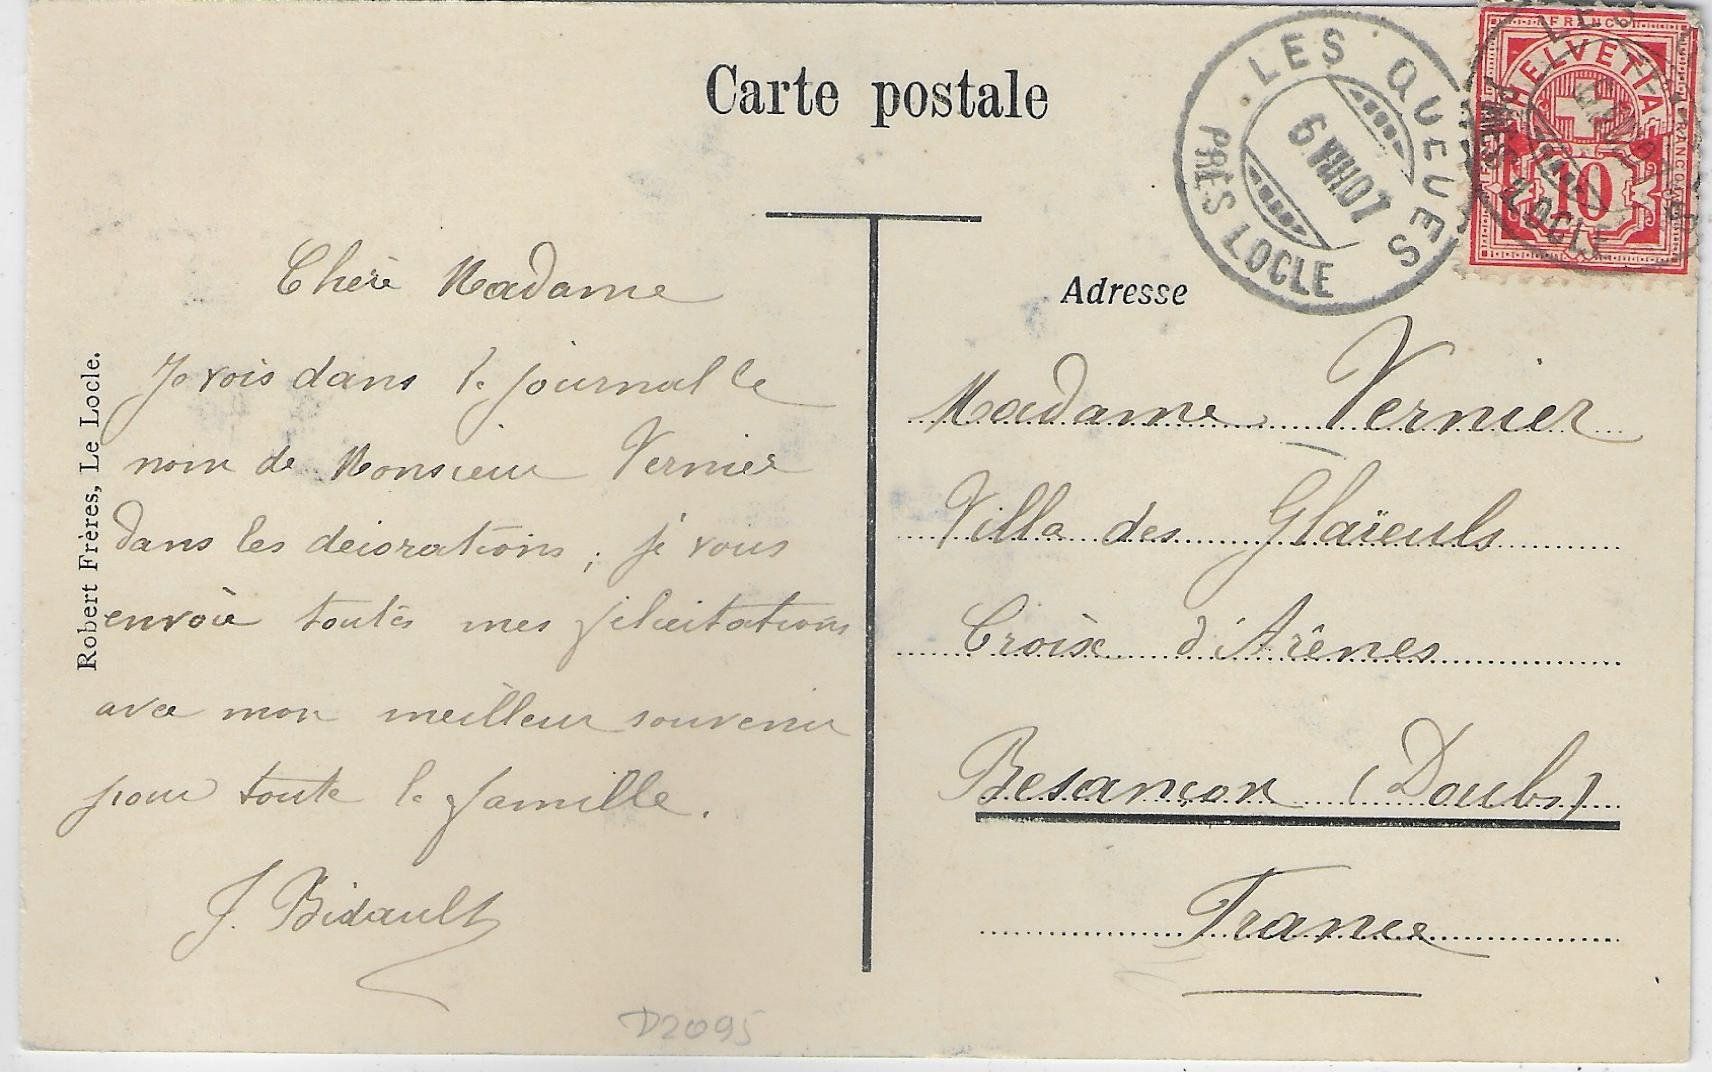 Carte postale
Chère Madame
Je vois dans le journal le
nom de Monsieur Vernier
dans les décorations, je vous
envoie toutes mes félicitations
avec mon meilleur souvenir
pour toute la famille.
J. Bidault
Robert Frères, Le Locle.
D2095
LES QUEVES
6 VIII 07
PRÈS LOCLE
FRANCO
HELVETIA
10
LOCLE
Adresse
Madame Vernier
Villa des Glaïeuls
Croix d'Arènes
Besançon (Doubs)
France